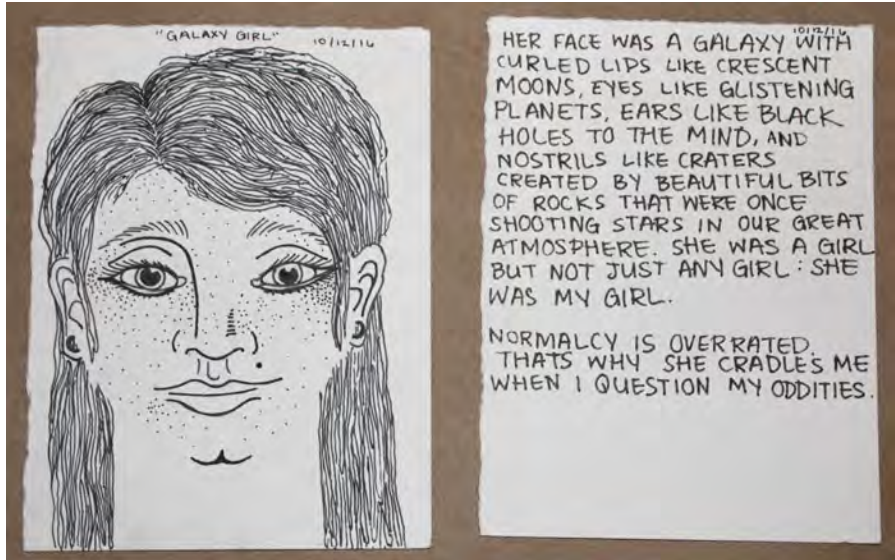 "GALAXY GIRL"
10/12/16
10/12/16
HER FACE WAS A GALAXY WITH
CURLED LIPS LIKE CRESCENT
MOONS, EYES LIKE GLISTENING
PLANETS, EARS LIKE BLACK
HOLES TO THE MIND, AND
NOSTRILS LIKE CRATERS
CREATED BY BEAUTIFUL BITS
OF ROCKS THAT WERE ONCE
SHOOTING STARS IN OUR GREAT
ATMOSPHERE. SHE WAS A GIRL
BUT NOT JUST ANY GIRL: SHE
WAS MY GIRL.
NORMALCY IS OVERRATED.
THATS WHY SHE CRADLE'S ME
WHEN I QUESTION MY ODDITIES.